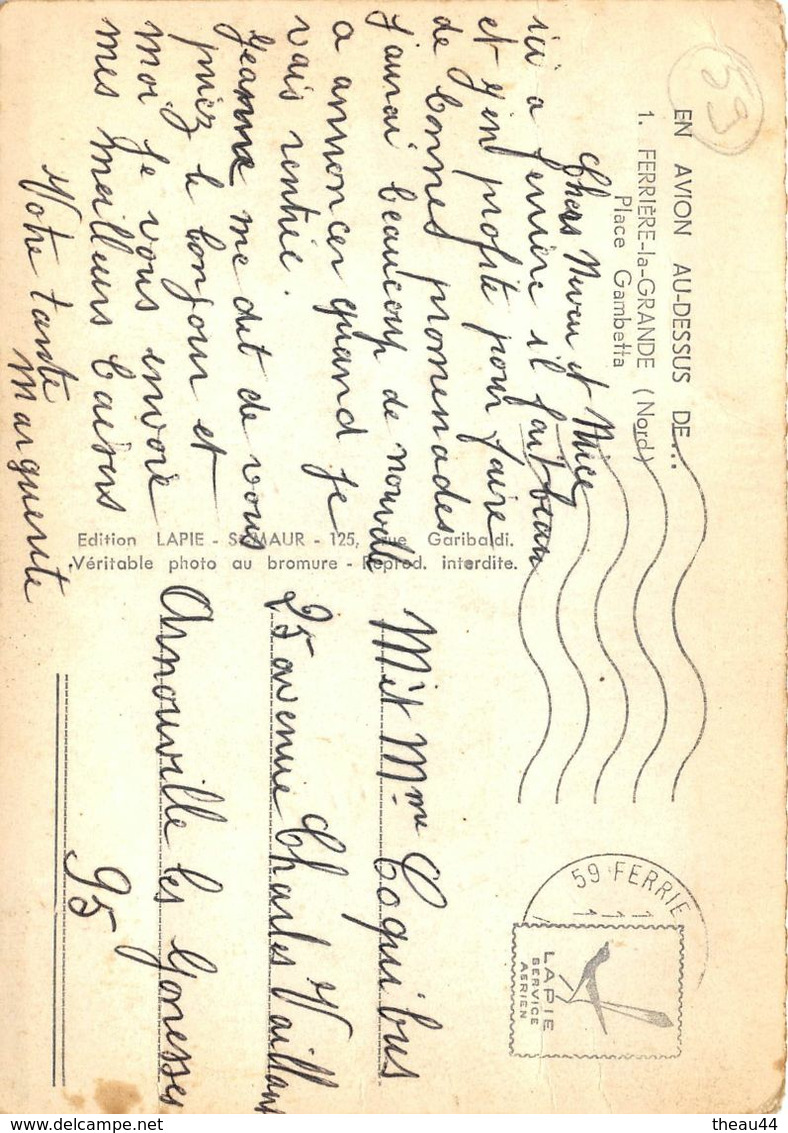 EN AVION AU-DESSUS DE...
1. FERRIÈRE-la-GRANDE (Nord)
Place Gambetta
59
Chers Neveu et Nièce
ici a Ferrière il fait beau
et j'en profite pour faire
de bonnes promenades
j'aurai beaucoup de nouvelle
a annoncer quand je
vais rentrée.
Jeanne me dit de vous
puiez le bonjour et
moi je vous envoie
mes meilleurs baisers
Votre tante
Marguerite
Edition LAPIE - St-MAUR - 125, rue Garibaldi.
Véritable photo au bromure - Reprod. interdite.
59 FERRIE
LAPIE
SERVICE
AERIEN
Mr et Mme Coquibus
25 avenue Charles Vaillant
Arnouville les Gonesses
95
theau44